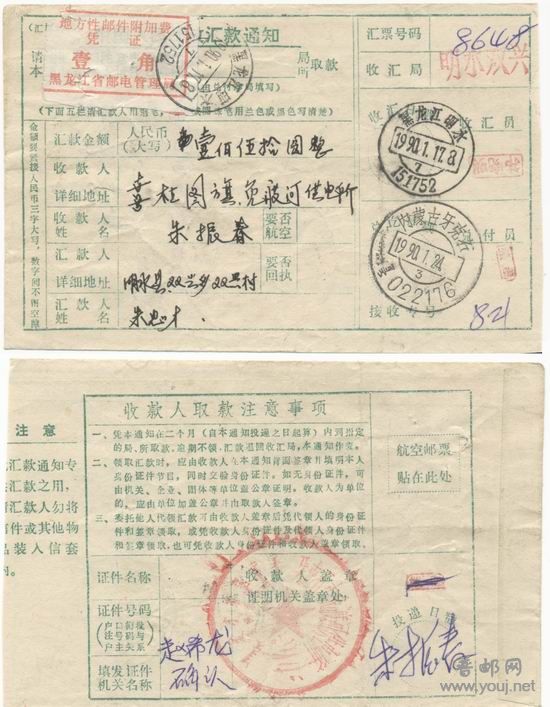 地方性邮件附加费
凭 证
壹 角
黑龙江省邮电管理局
汇款通知
汇票号码 8648
收汇局 明水双兴
局取款
所
(下面五栏请汇款人用钢笔、
用兰色或黑色写清楚)
金额到元接人民币三字大写,数字间不留空隙
汇款金额 人民币
(大写) 壹佰伍拾圆整
收款人
详细地址
图 旗 河供电所
收款人
姓名 朱振春
要否
航空
汇款人
详细地址 明水县双兴乡双兴村
要否
回执
汇款人
姓名
收汇员
付员
接收 号 84
黑龙江明水
1990.1.17.8
7
151752
151752
内蒙古牙克石
1990.1.24.
3
022176
注意
汇款通知专
汇款之用,
汇款人勿将
件或其他物
装入信套
收款人取款注意事项
一、凭本通知在二个月(自本通知投递之日起算)内到指定
的局、所取款,逾期不领,汇款退回收汇局,本通知作废。
二、领取汇款时,应由收款人在本通知背面签章并填明本人
身份证件节目,同时交验身份证件。如无身份证件,可
由机关、企业、团体等单位盖公章证明。收款人为单位
的,应由单位加盖公章并由取款人签章。
三、委托他人代领汇款可由收款人盖章后凭代领人的身份证
件和签章领取,或凭收款人身份证件及代领人身份证
件和签章领取,也可凭收款人身份证件和收款人盖章领取。
航空邮票
贴在此处
证件名称
收款人盖章
证明机关盖章处:
证件号码
(户口簿批
注号码与
户主关系)
填发证件
机关名称
赵希龙
确认
投递日戳
朱振春
喜邮网
www.youj.net